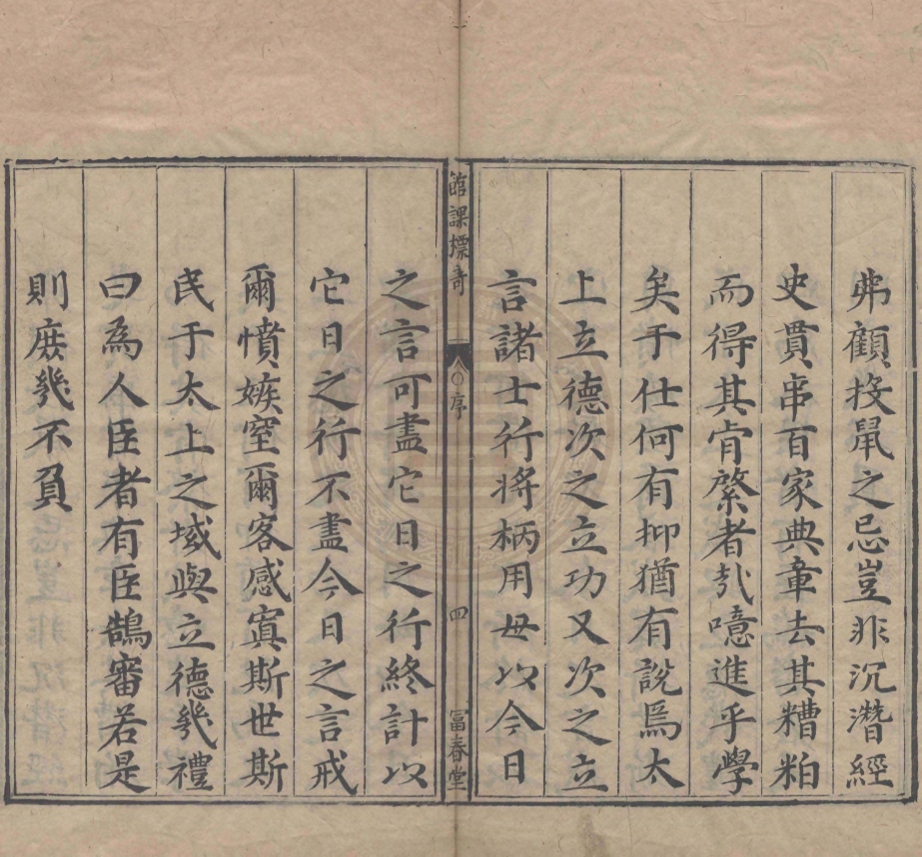 弗顧投鼠之忌豈非沉潛經
史貫串百家典章去其糟粕
而得其肯綮者𫡏噫進乎學
矣于仕何有抑猶有說焉太
上立德次之立功又次之立
言諸士行將柄用毋以今日
館課標奇 一卷 序 四 富春堂
之言可盡它日之行終計以
它日之行不盡今日之言戒
爾憤嫉窒爾客感寘斯世斯
民于太上之域與立德幾禮
曰為人臣者有臣鵠審若是
則庶幾不負